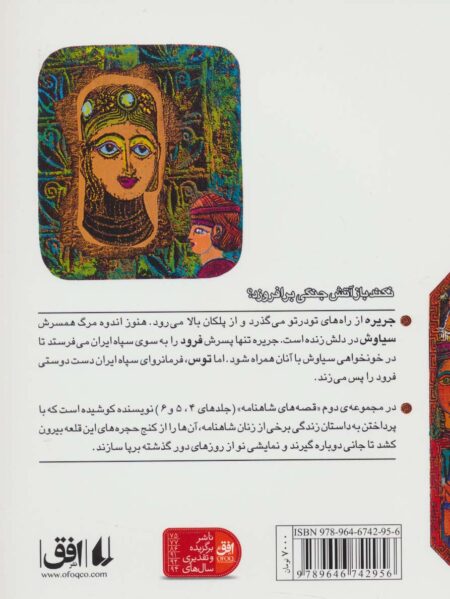 نکند باز آتش جنگی برافروزد؟
جریره از راه‌های تودرتو می‌گذرد و از پلکان بالا می‌رود. هنوز اندوه مرگ همسرش
سیاوش در دلش زنده است. جریره تنها پسرش فرود را به سوی سپاه ایران می‌فرستد تا
در خونخواهی سیاوش با آنان همراه شود. اما توس، فرمانروای سپاه ایران دست دوستی
فرود را پس می‌زند.
در مجموعه‌ی دوم «قصه‌های شاهنامه» (جلدهای ۴، ۵ و ۶) نویسنده کوشیده است که با
پرداختن به داستان زندگی برخی از زنان شاهنامه، آن‌ها را از کنج حجره‌های این قلعه بیرون
کشد تا جانی دوباره گیرند و نمایشی نو از روزهای دور گذشته برپا سازند.
افق
www.ofoqco.com
ناشر
برگزیده
و تقدیری
سال‌های
افق
OFOQ
ISBN 978-964-6742-95-6
9 789646 742956
۷۰۰۰ تومان